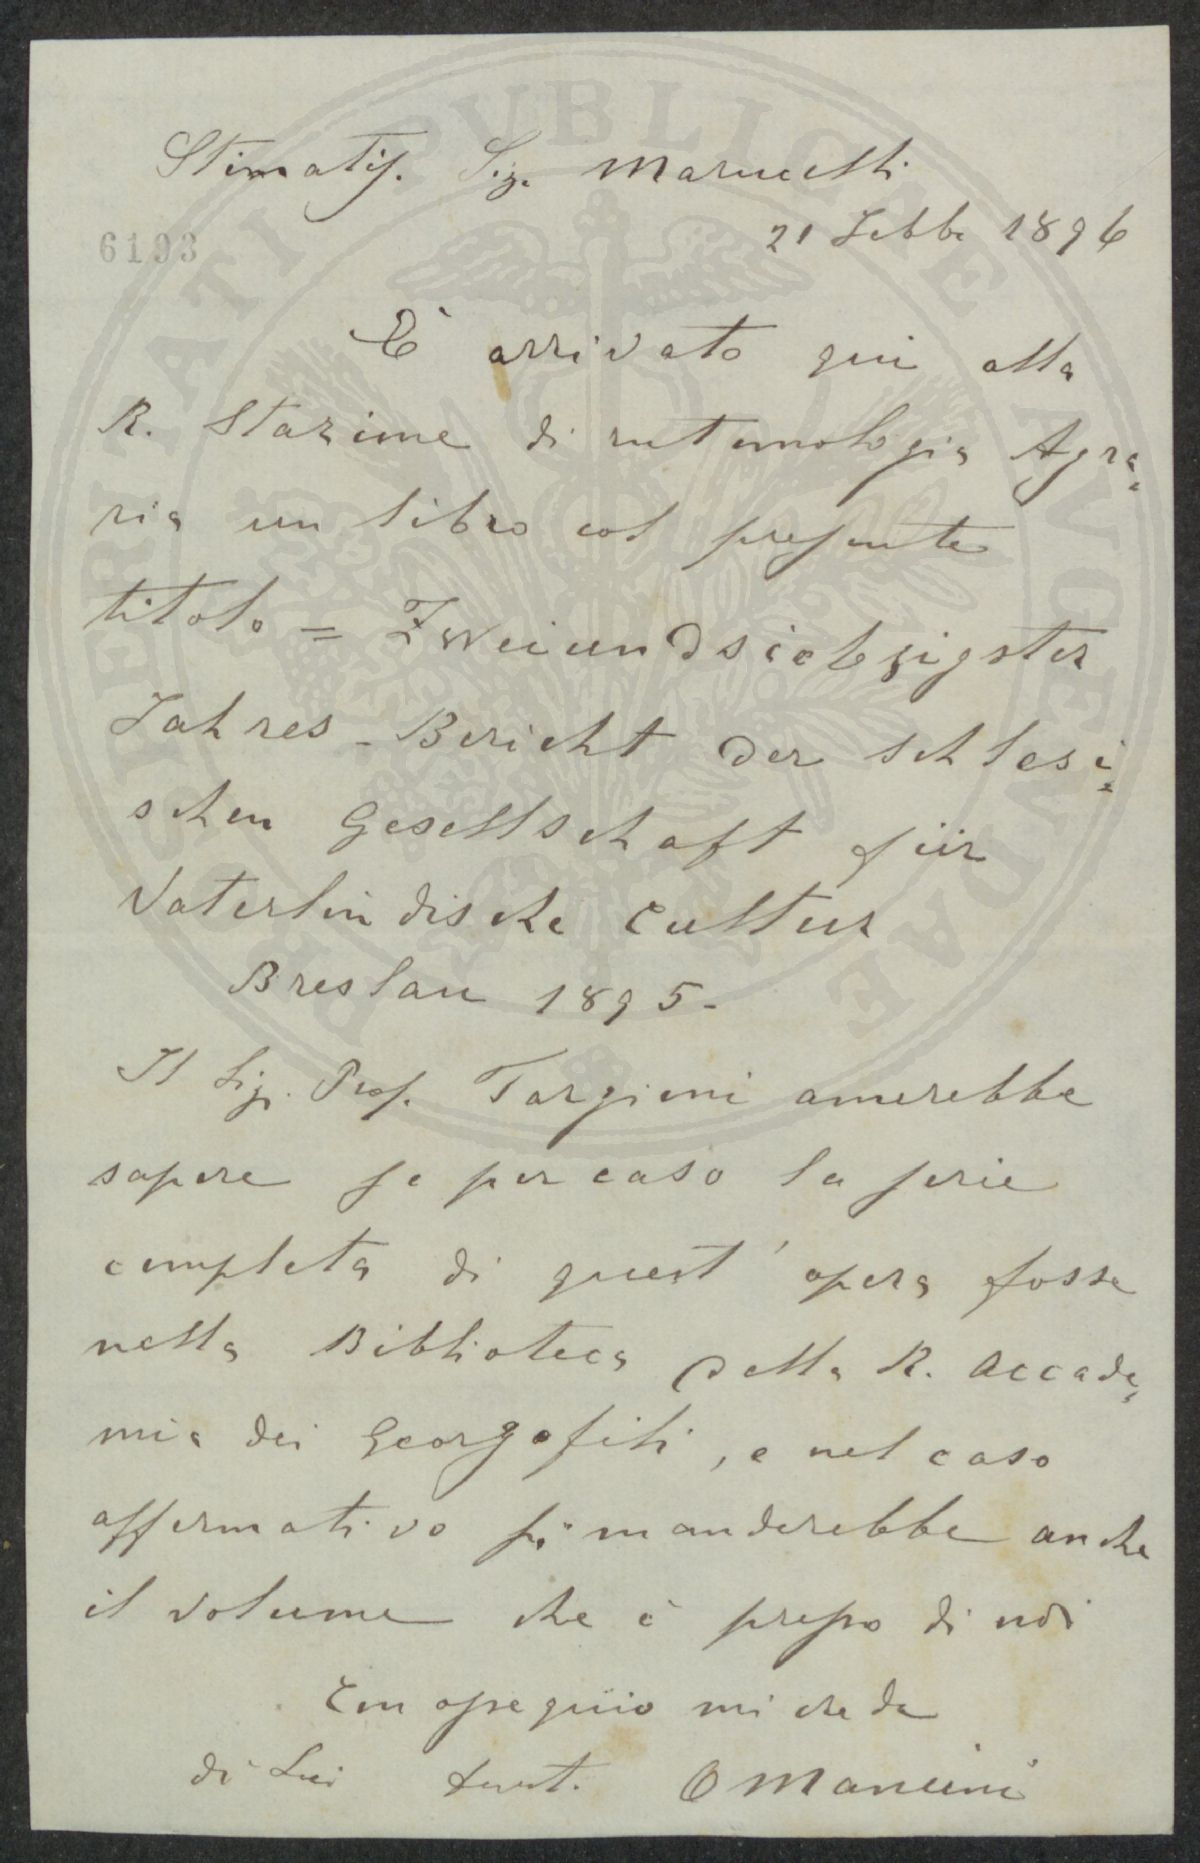 Stimatiss. Sig. Marucelli
21 Febb. 1896
6193
È arrivato qui alla
R. Stazione di entomologia Agra=
ria un libro col presente
titolo = Zweiundsiebzigster
Jahres-Bericht der schlesi=
schen Gesellschaft für
Vaterländische Cultur
Breslau 1895.
Il Sig. Prof. Targioni amerebbe
sapere se per caso la serie
completa di quest' opera fosse
nella Biblioteca della R. Accade=
mia dei Georgofili, e nel caso
affermativo si manderebbe anche
il volume che è presso di noi
Con ossequio mi creda
di Lei O Mancini
PROSPERITATI PVBLICAE AVGENDAE